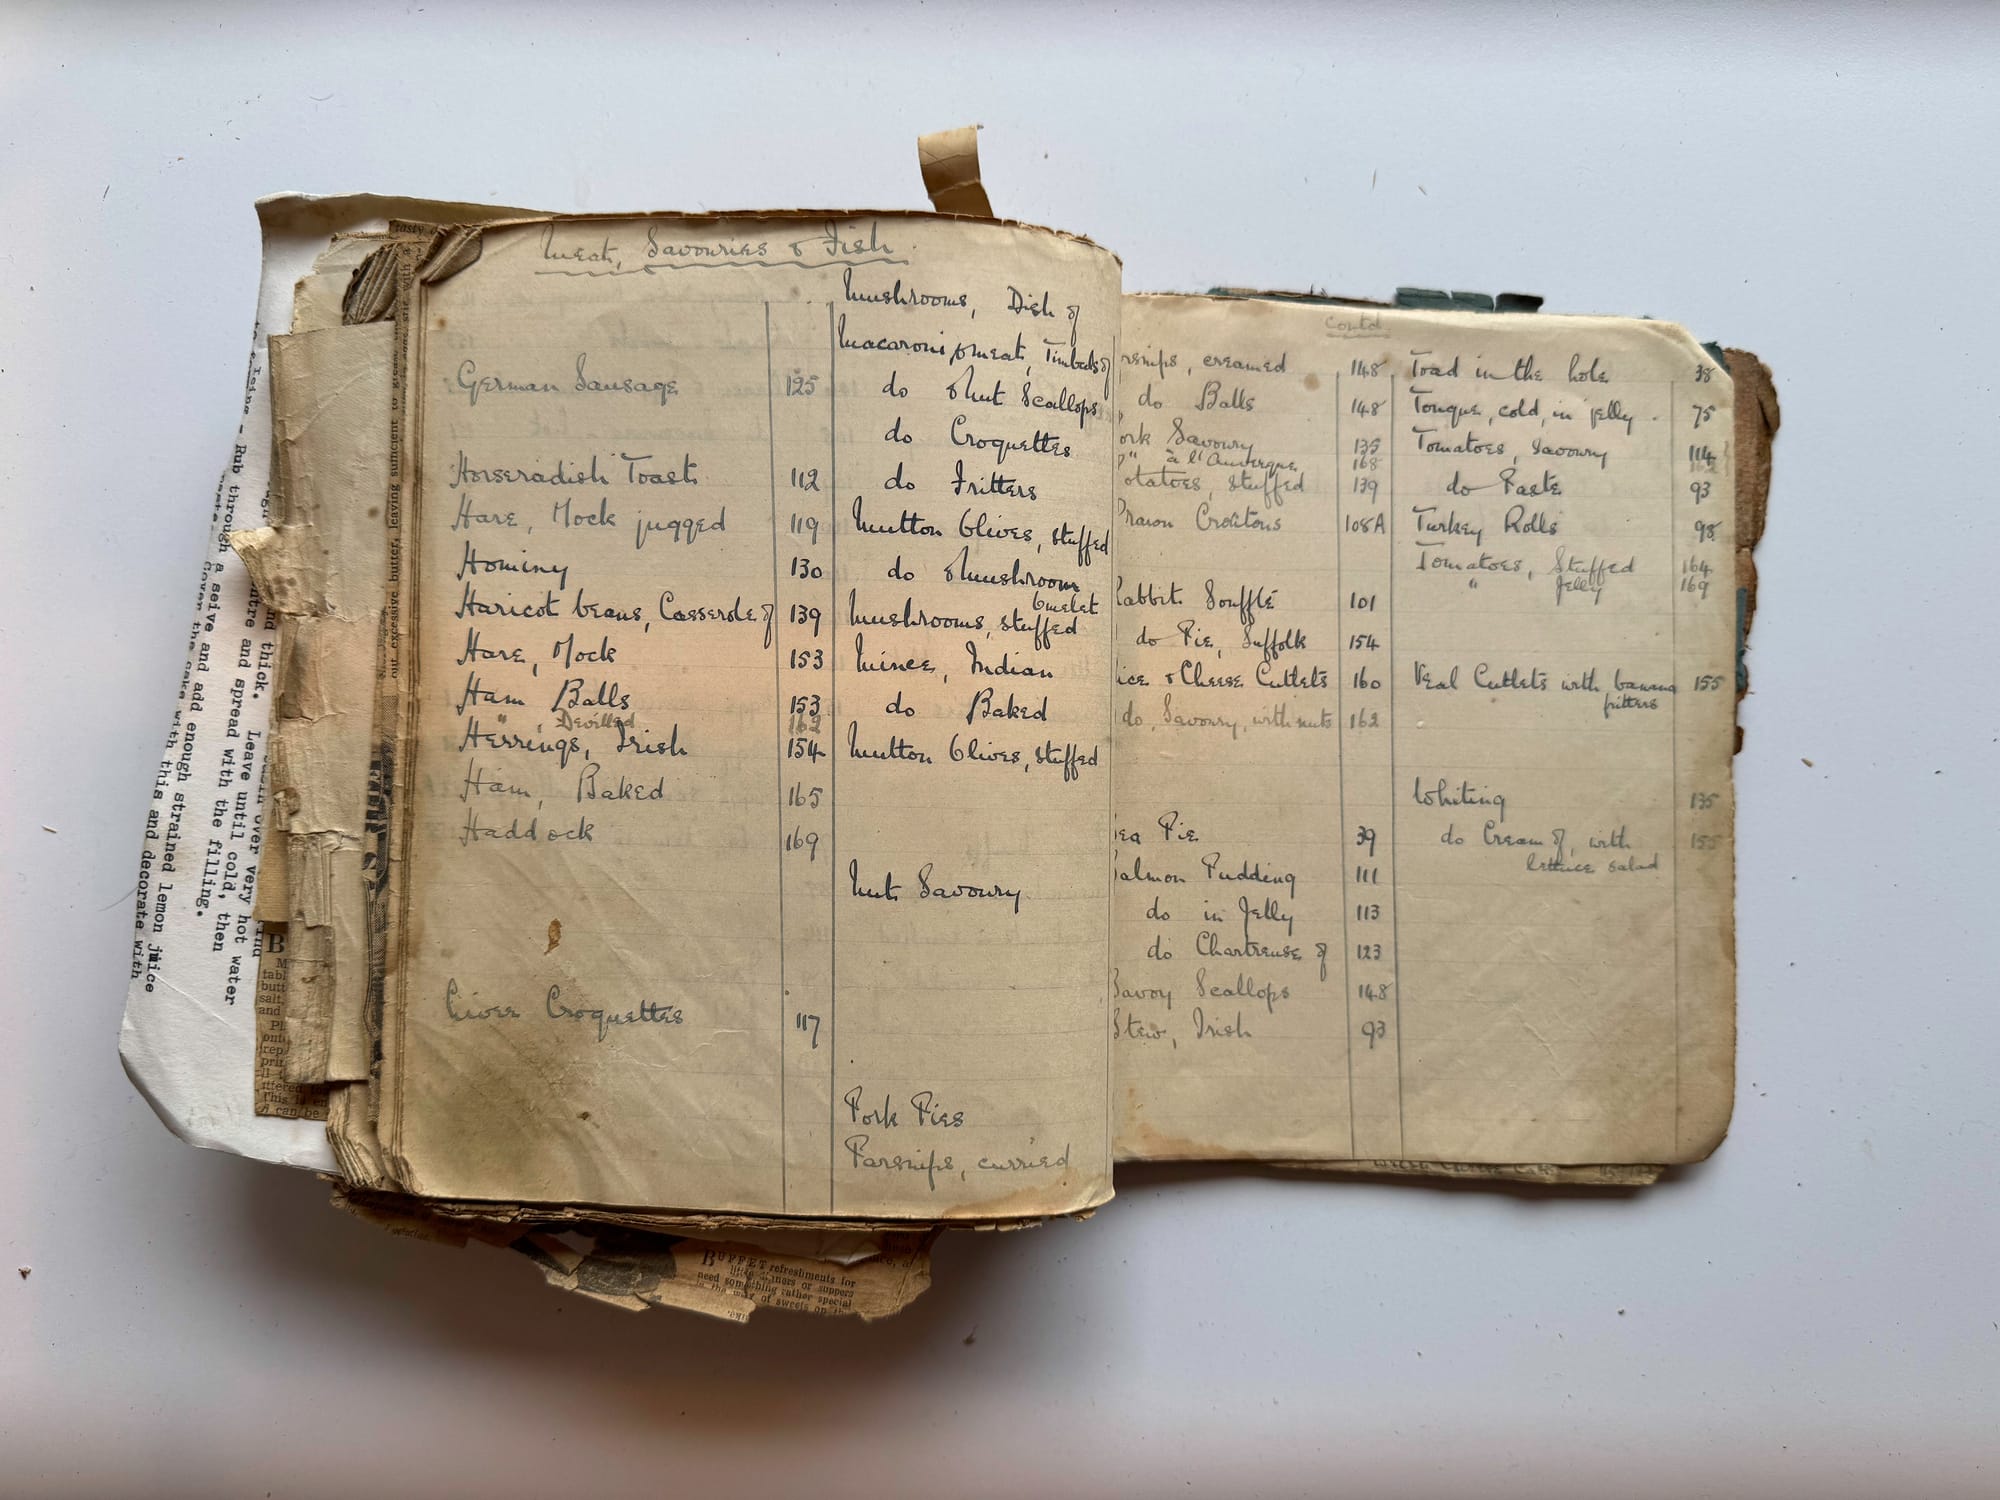 Meat, Savouries & Fish.
German Sausage 125
Horseradish Toast 112
Hare, Mock jugged 119
Hominy 130
Haricot beans, Casserole of 139
Hare, Mock 153
Ham Balls 153
" Devilled 162
Herrings, Irish 154
Ham, Baked 165
Haddock 169
Liver Croquettes 117
Mushrooms, Dish of
Macaroni & meat, Timbals of
do & nut Scallops
do Croquettes
do Fritters
Mutton Olives, stuffed
do & mushroom
Omelet
Mushrooms, stuffed
Mince, Indian
do Baked
Mutton Olives, stuffed
Nut Savoury
Pork Pies
Parsnips, curried
contd.
rsnips, creamed 148
" do Balls 148
ork Savoury 135
" à l'Auvergne 168
Potatoes, stuffed 139
Prawn Croûtons 108A
Rabbit Soufflé 101
do Pie, Suffolk 154
ice & Cheese Cutlets 160
do, Savoury, with nuts 162
ea Pie 39
Salmon Pudding 111
do in Jelly 113
do Chartreuse of 123
Savoy Scallops 148
Stew, Irish 93
Toad in the hole 38
Tongue, cold, in jelly. 75
Tomatoes, Savoury 114
do Paste 93
Turkey Rolls 98
Tomatoes, Stuffed 164
" Jelly 169
Veal Cutlets with banana 155
fritters
Whiting 135
do Cream of, with 155
lettuce salad
Rub through a seive and add enough strained lemon juice
Cover the cake with this and decorate with
and thick. Leave until cold, then
and spread with the filling.
over very hot water
out excessive butter, leaving sufficient to grease
tasty
BUFFET refreshments for
little dinners or suppers
need something rather special
in the way of sweets on the